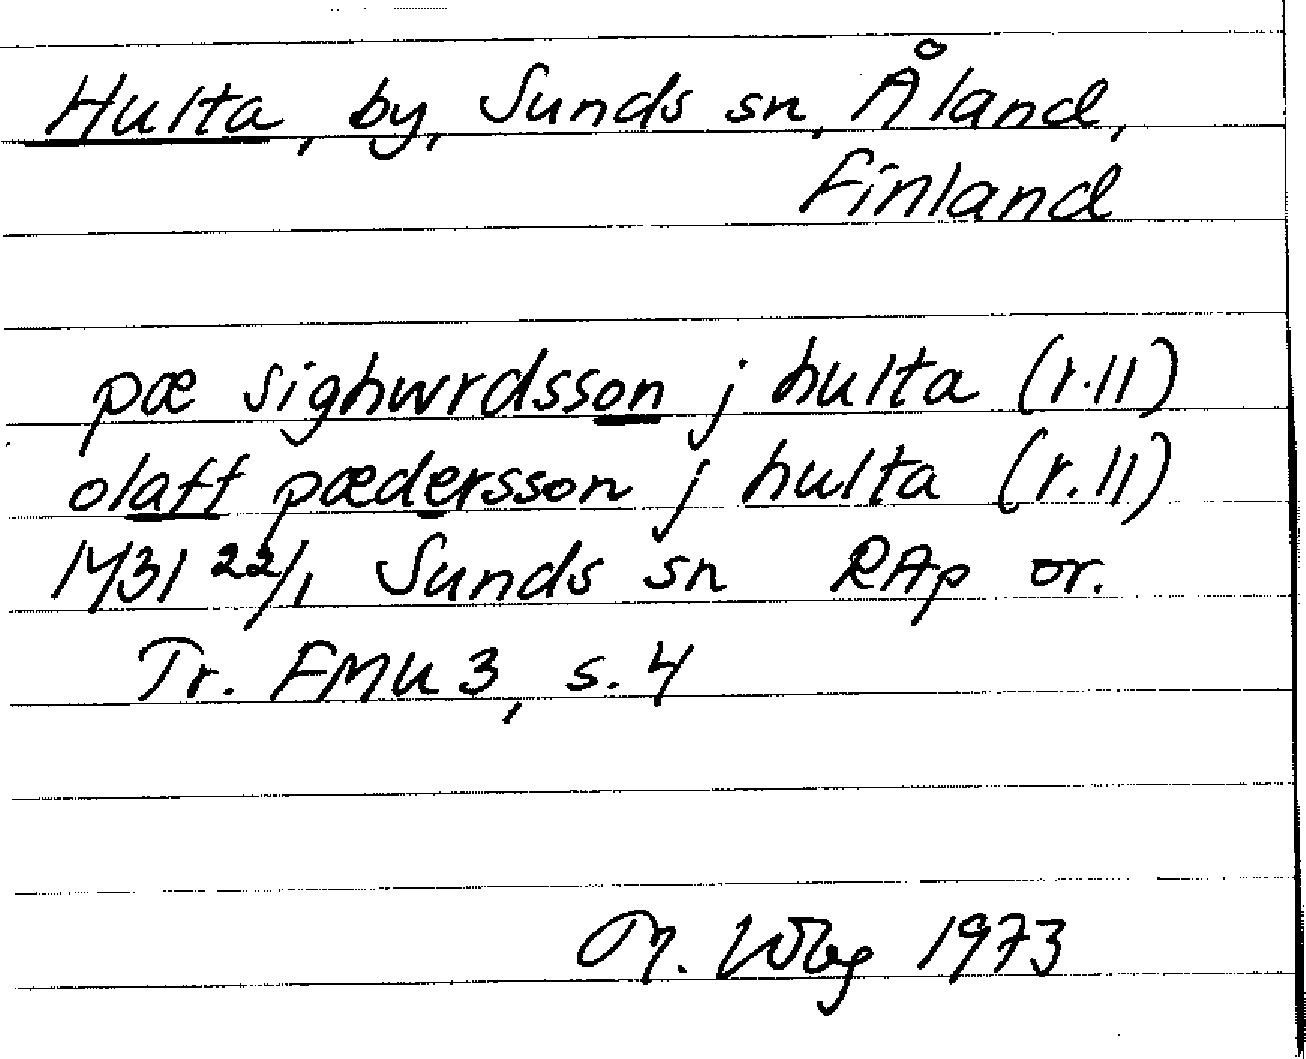 Hulta, by, Sunds sn, Åland,
Finland
pæ sighwrdsson j hulta (r.11)
olaff pædersson j hulta (r.11)
1431 22/1 Sunds sn RAp or.
Tr. FMU 3, s. 4
M. Wbg 1973